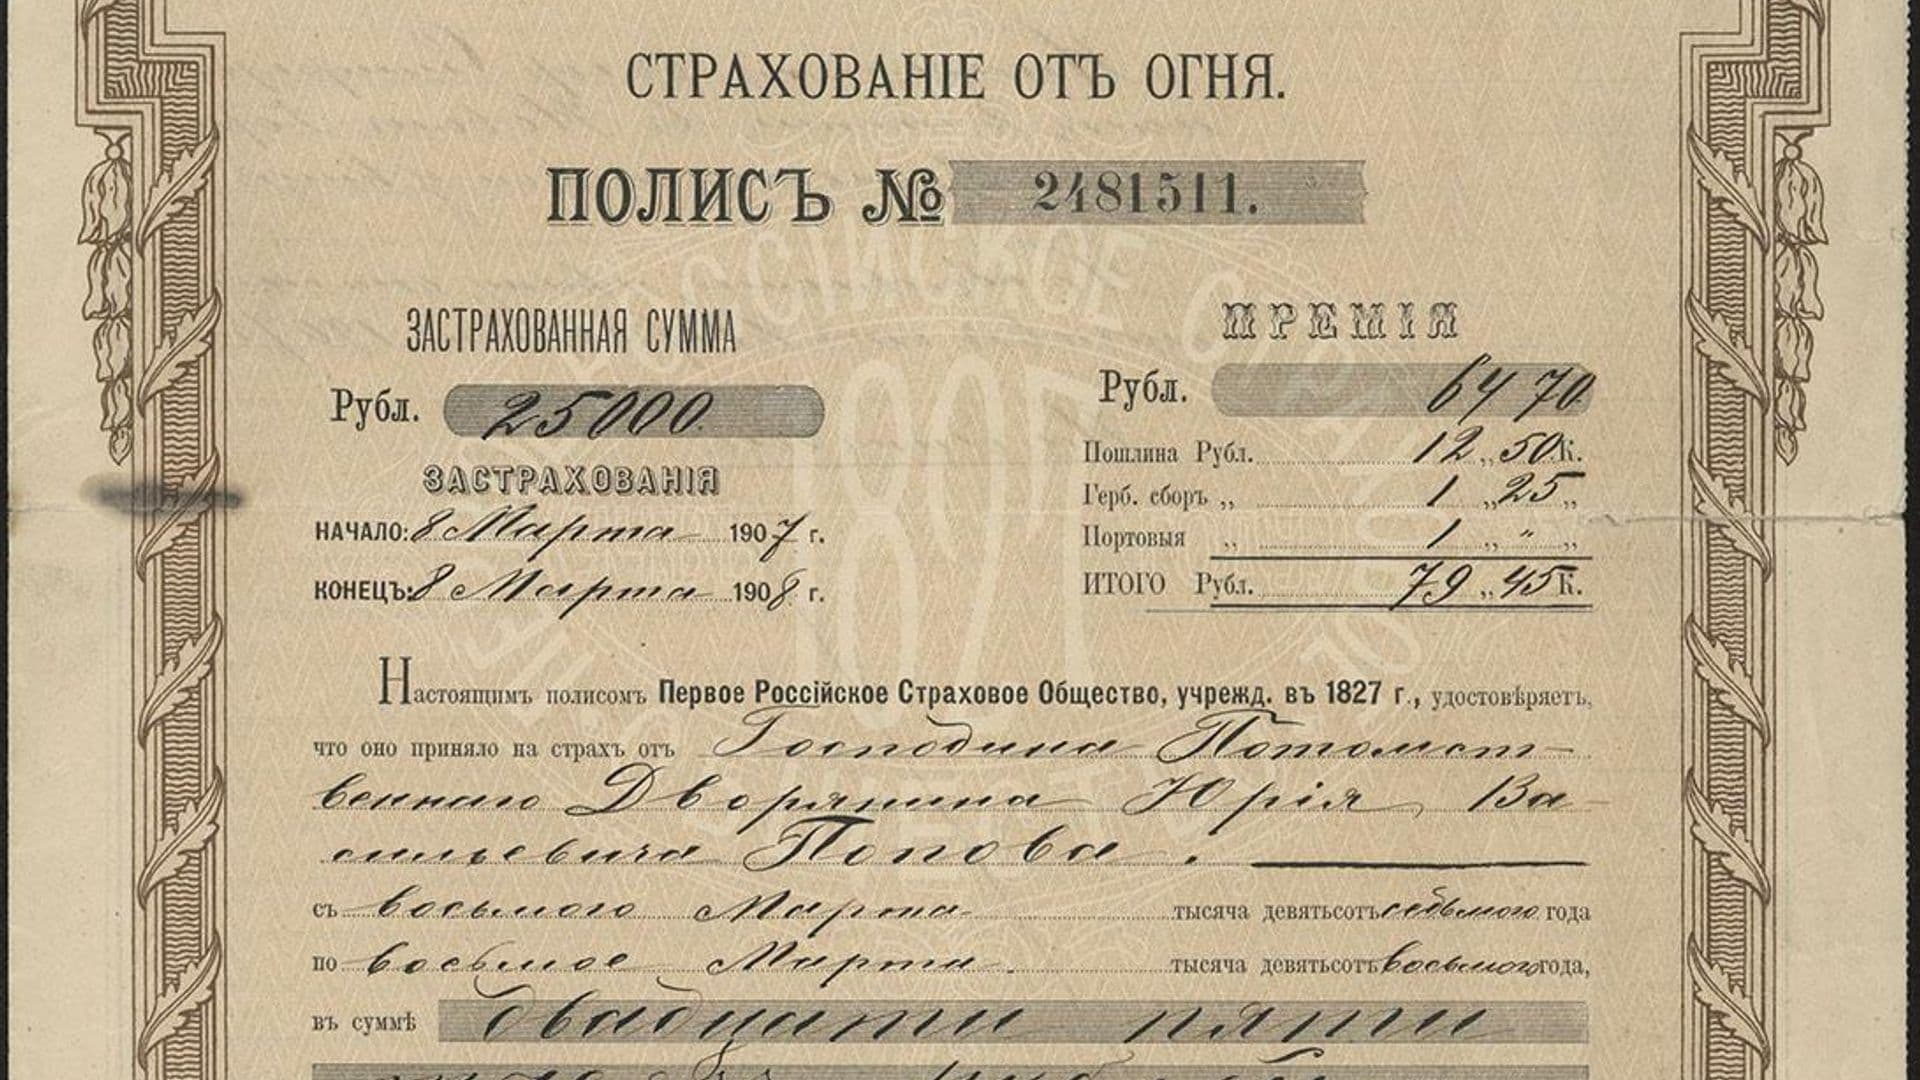 СТРАХОВАНІЕ ОТЪ ОГНЯ.
ПОЛИСЪ № 2481511.
ЗАСТРАХОВАННАЯ СУММА
Рубл. 25000.
ЗАСТРАХОВАНІЯ
НАЧАЛО: 8 Марта 1907 г.
КОНЕЦЪ: 8 Марта 1908 г.
ПРЕМІЯ
Рубл. 64 70
Пошлина Рубл. 12 „ 50 К.
Герб. сборъ „ 1 „ 25 „
Портовыя „ 1 „ " „
ИТОГО Рубл. 79 „ 45 К.
Настоящимъ полисомъ Первое Россійское Страховое Общество, учрежд. въ 1827 г., удостовѣряетъ,
что оно приняло на страхъ отъ Господина Потомст-
веннаго Дворянина Юрія Ва-
сильевича Попова.
съ восьмого Марта тысяча девятьсотъ седьмого года
по восьмое Марта. тысяча девятьсотъ восьмого года,
въ суммѣ двадцати пяти